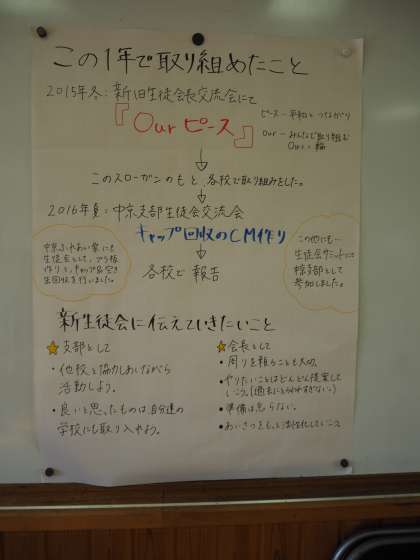 この1年で取り組めたこと
2015年冬:新旧生徒会長交流会にて
『Our ピース』
ピース―平和と つながり
our―みんなで取り組む
Our=輪
このスローガンのもと、各校で取り組みをした。
2016年夏:中京支部生徒会交流会
キャップ回収のCM作り
各校で 報告
中京ふれあい祭にも
生徒会として、
作りと、キャップ
回収を行いました。
この他にも…
生徒会サミットに
支部として
参加しました。
新生徒会に伝えていきたいこと
支部として
・他校と協力しあいながら
活動しよう。
・良いと思ったものは自分達の
学校にも取り入れよう。
会長として
・周りを頼ることも大切。
・やりたいことはどんどん提案して
いこう。(過去にとらわれすぎない)
・準備は怠らない。
・あいさつをもっと活性化していこう。